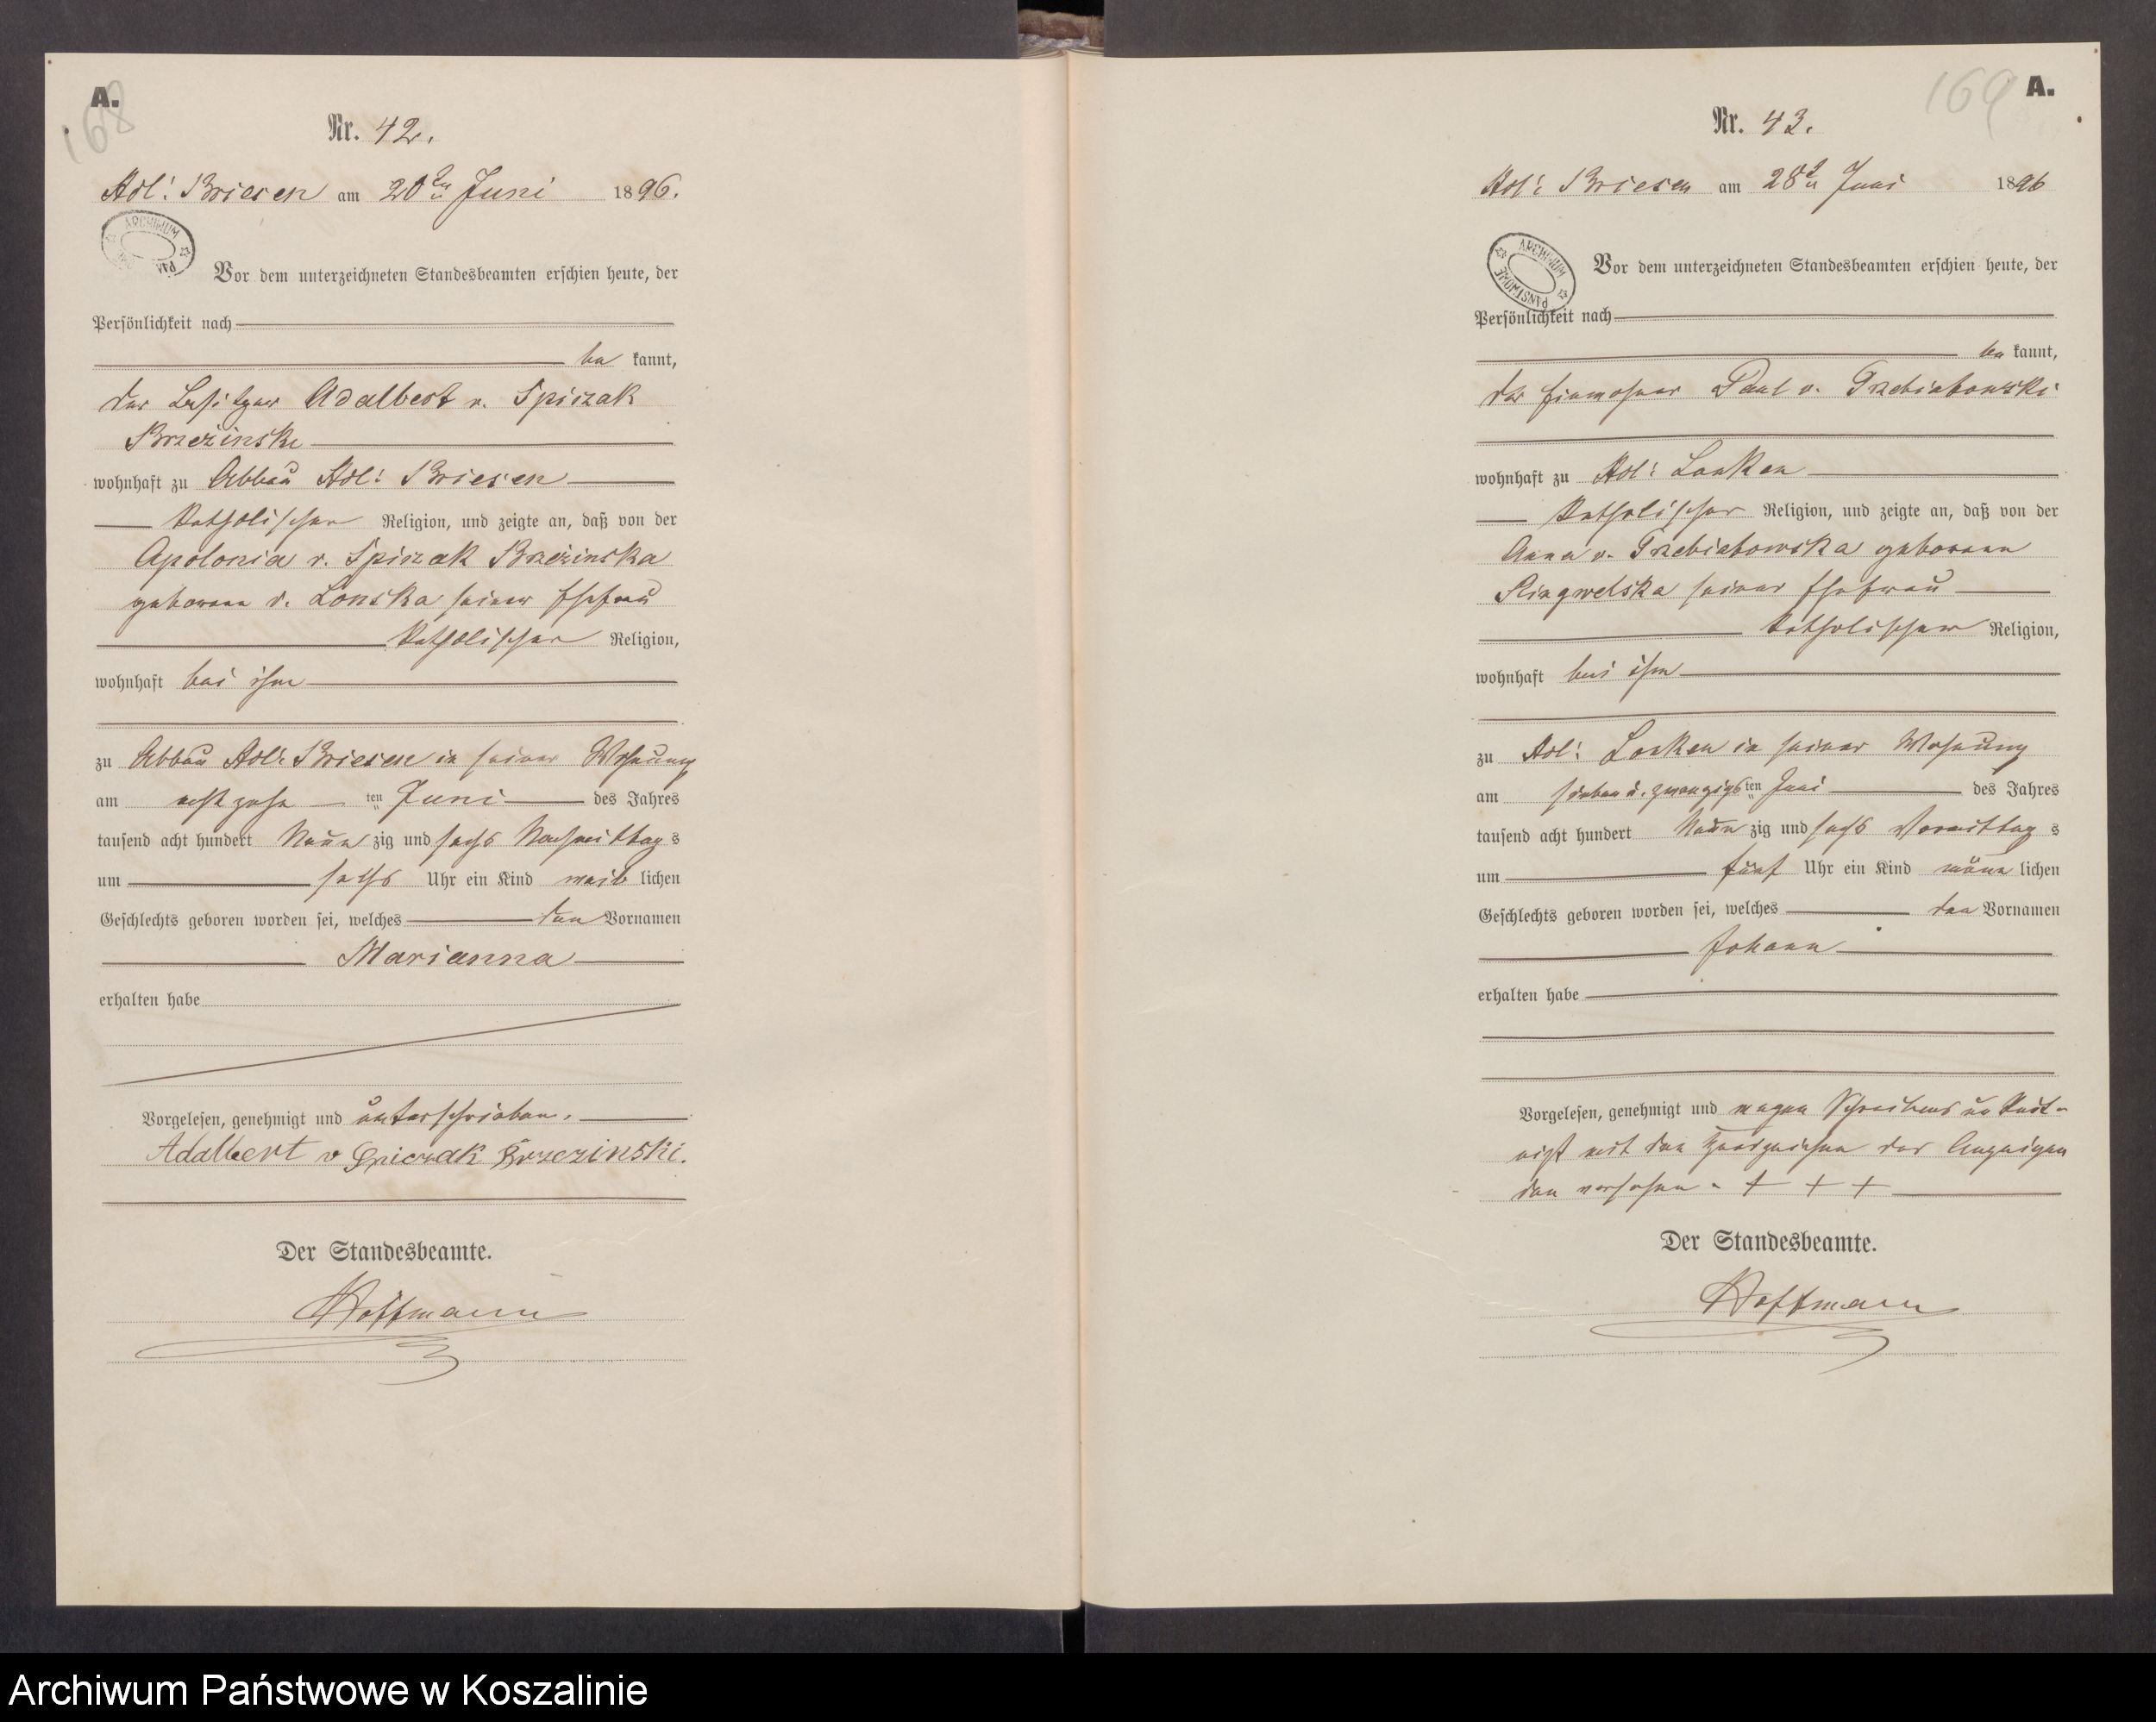 A.
168
Nr. 42.
Adl: Briesen am 20ten Juni 1896.
ARCHIWUM
Vor dem unterzeichneten Standesbeamten erschien heute, der
Persönlichkeit nach
be kannt,
der Besitzer Adalbert v. Spiczak
Brzezinski
wohnhaft zu Abbau Adl: Briesen
katholischer Religion, und zeigte an, daß von der
Apolonia v. Spiczak Brzezinska
geborene v. Lonska seiner Ehefrau
katholischer Religion,
wohnhaft bei ihm
zu Abbau Adl: Briesen in seiner Wohnung
am achtzehn ten Juni des Jahres
tausend acht hundert Neun zig und sechs Nachmittag s
um sechs Uhr ein Kind weib lichen
Geschlechts geboren worden sei, welches den Vornamen
Marianna
erhalten habe
Vorgelesen, genehmigt und unterschrieben.
Adalbert v Spiczak Brzezinski.
Der Standesbeamte.
Hoffmann
169 A.
Nr. 43.
Adl: Briesen am 28ten Juni 1896
ARCHIWUM PAŃSTWOWE
Vor dem unterzeichneten Standesbeamten erschien heute, der
Persönlichkeit nach
be kannt,
der Einwohner Paul v. Trzebiatowski
wohnhaft zu Adl: Lonken
katholischer Religion, und zeigte an, daß von der
Anna v. Trzebiatowska geborene
Ringwelska seiner Ehefrau
katholischer Religion,
wohnhaft bei ihm
zu Adl: Lonken in seiner Wohnung
am sieben u. zwanzigs ten Juni des Jahres
tausend acht hundert Neun zig und sechs Vormittag s
um fünf Uhr ein Kind männ lichen
Geschlechts geboren worden sei, welches den Vornamen
Johann
erhalten habe
Vorgelesen, genehmigt und wegen Schreibens un kent-
niß mit den Handzeichen des Anzeigen
den versehen. + + +
Der Standesbeamte.
Hoffmann
Archiwum Państwowe w Koszalinie